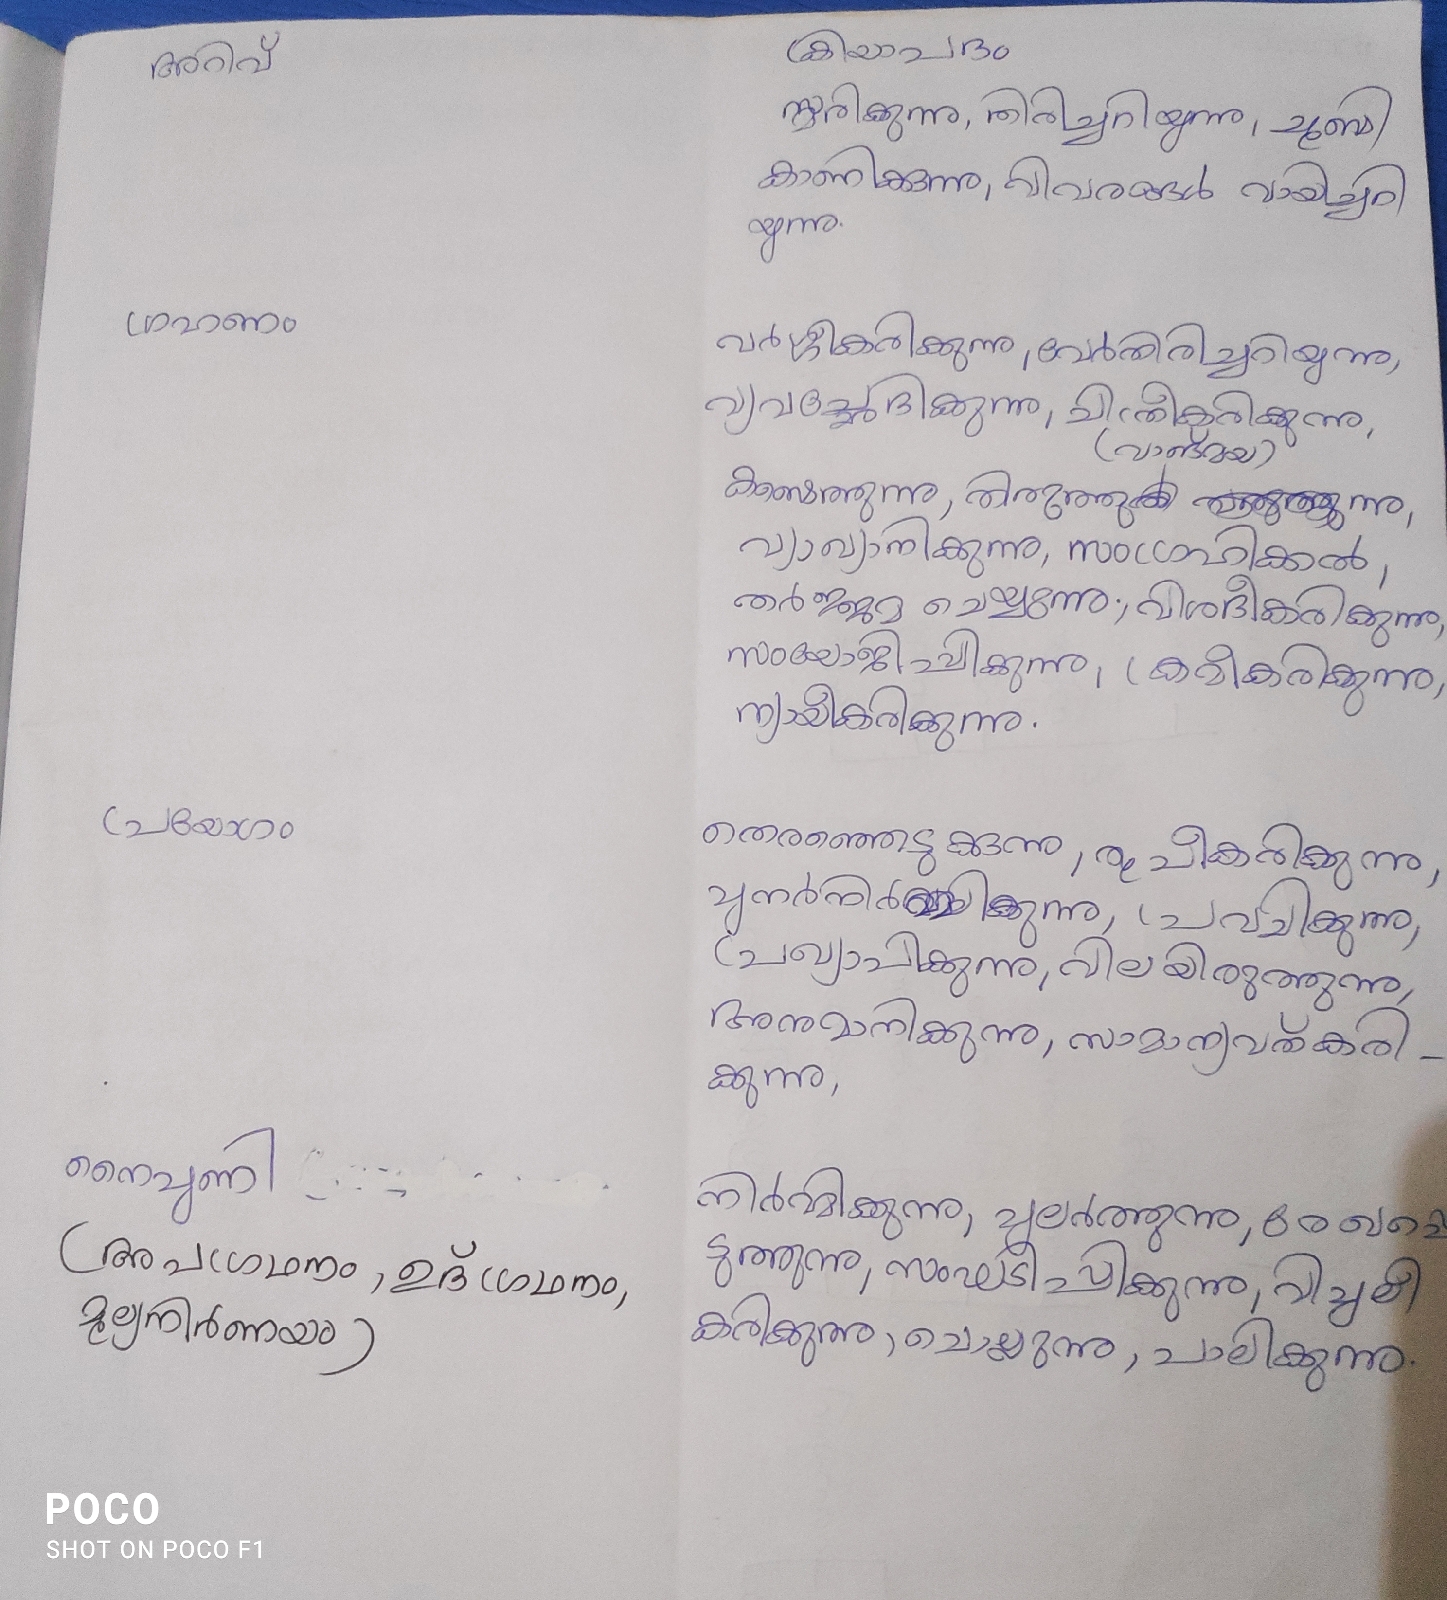 അറിവ്
ക്രിയാപദം
സ്മരിക്കുന്നു, തിരിച്ചറിയുന്നു, ചൂണ്ടി
കാണിക്കുന്നു, വിവരങ്ങൾ വായിച്ചറി
യുന്നു.
ഗ്രഹണം
വർഗ്ഗീകരിക്കുന്നു, വേർതിരിച്ചറിയുന്നു,
വ്യവച്ഛേദിക്കുന്നു, ചിത്രീകരിക്കുന്നു,
(വാങ്മയ)
കണ്ടെത്തുന്നു, തിരുത്തുന്നു,
വ്യാഖ്യാനിക്കുന്നു, സംഗ്രഹിക്കൽ,
തർജ്ജമ ചെയ്യുന്നു, വിശദീകരിക്കുന്നു,
സംയോജിപ്പിക്കുന്നു, ക്രമീകരിക്കുന്നു,
ന്യായീകരിക്കുന്നു.
പ്രയോഗം
തെരഞ്ഞെടുക്കുന്നു, രൂപീകരിക്കുന്നു,
പുനർനിർമ്മിക്കുന്നു, പ്രവചിക്കുന്നു,
പ്രഖ്യാപിക്കുന്നു, വിലയിരുത്തുന്നു,
അനുമാനിക്കുന്നു, സാമാന്യവത്കരി-
ക്കുന്നു,
നൈപുണി
(അപഗ്രഥനം, ഉദ്ഗ്രഥനം,
മൂല്യനിർണയം)
നിർമ്മിക്കുന്നു, പുലർത്തുന്നു, രേഖപ്പെ
ടുത്തുന്നു, സംഘടിപ്പിക്കുന്നു, വിപുലീ
കരിക്കുന്നു, ചൊല്ലുന്നു, പാലിക്കുന്നു.
POCO
SHOT ON POCO F1